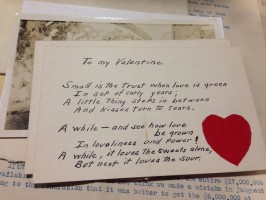 To my Valentine
Small is the Trust when love is green
In sap of early years;
A little thing steps in between
And kisses turn to Tears.
A while — and see how love
be grown
In loveliness and power!
A while, it loves the sweets alone,
But next it loves the sour.
we made a mistake in judgment
that it was better to get the $6,500,000 at